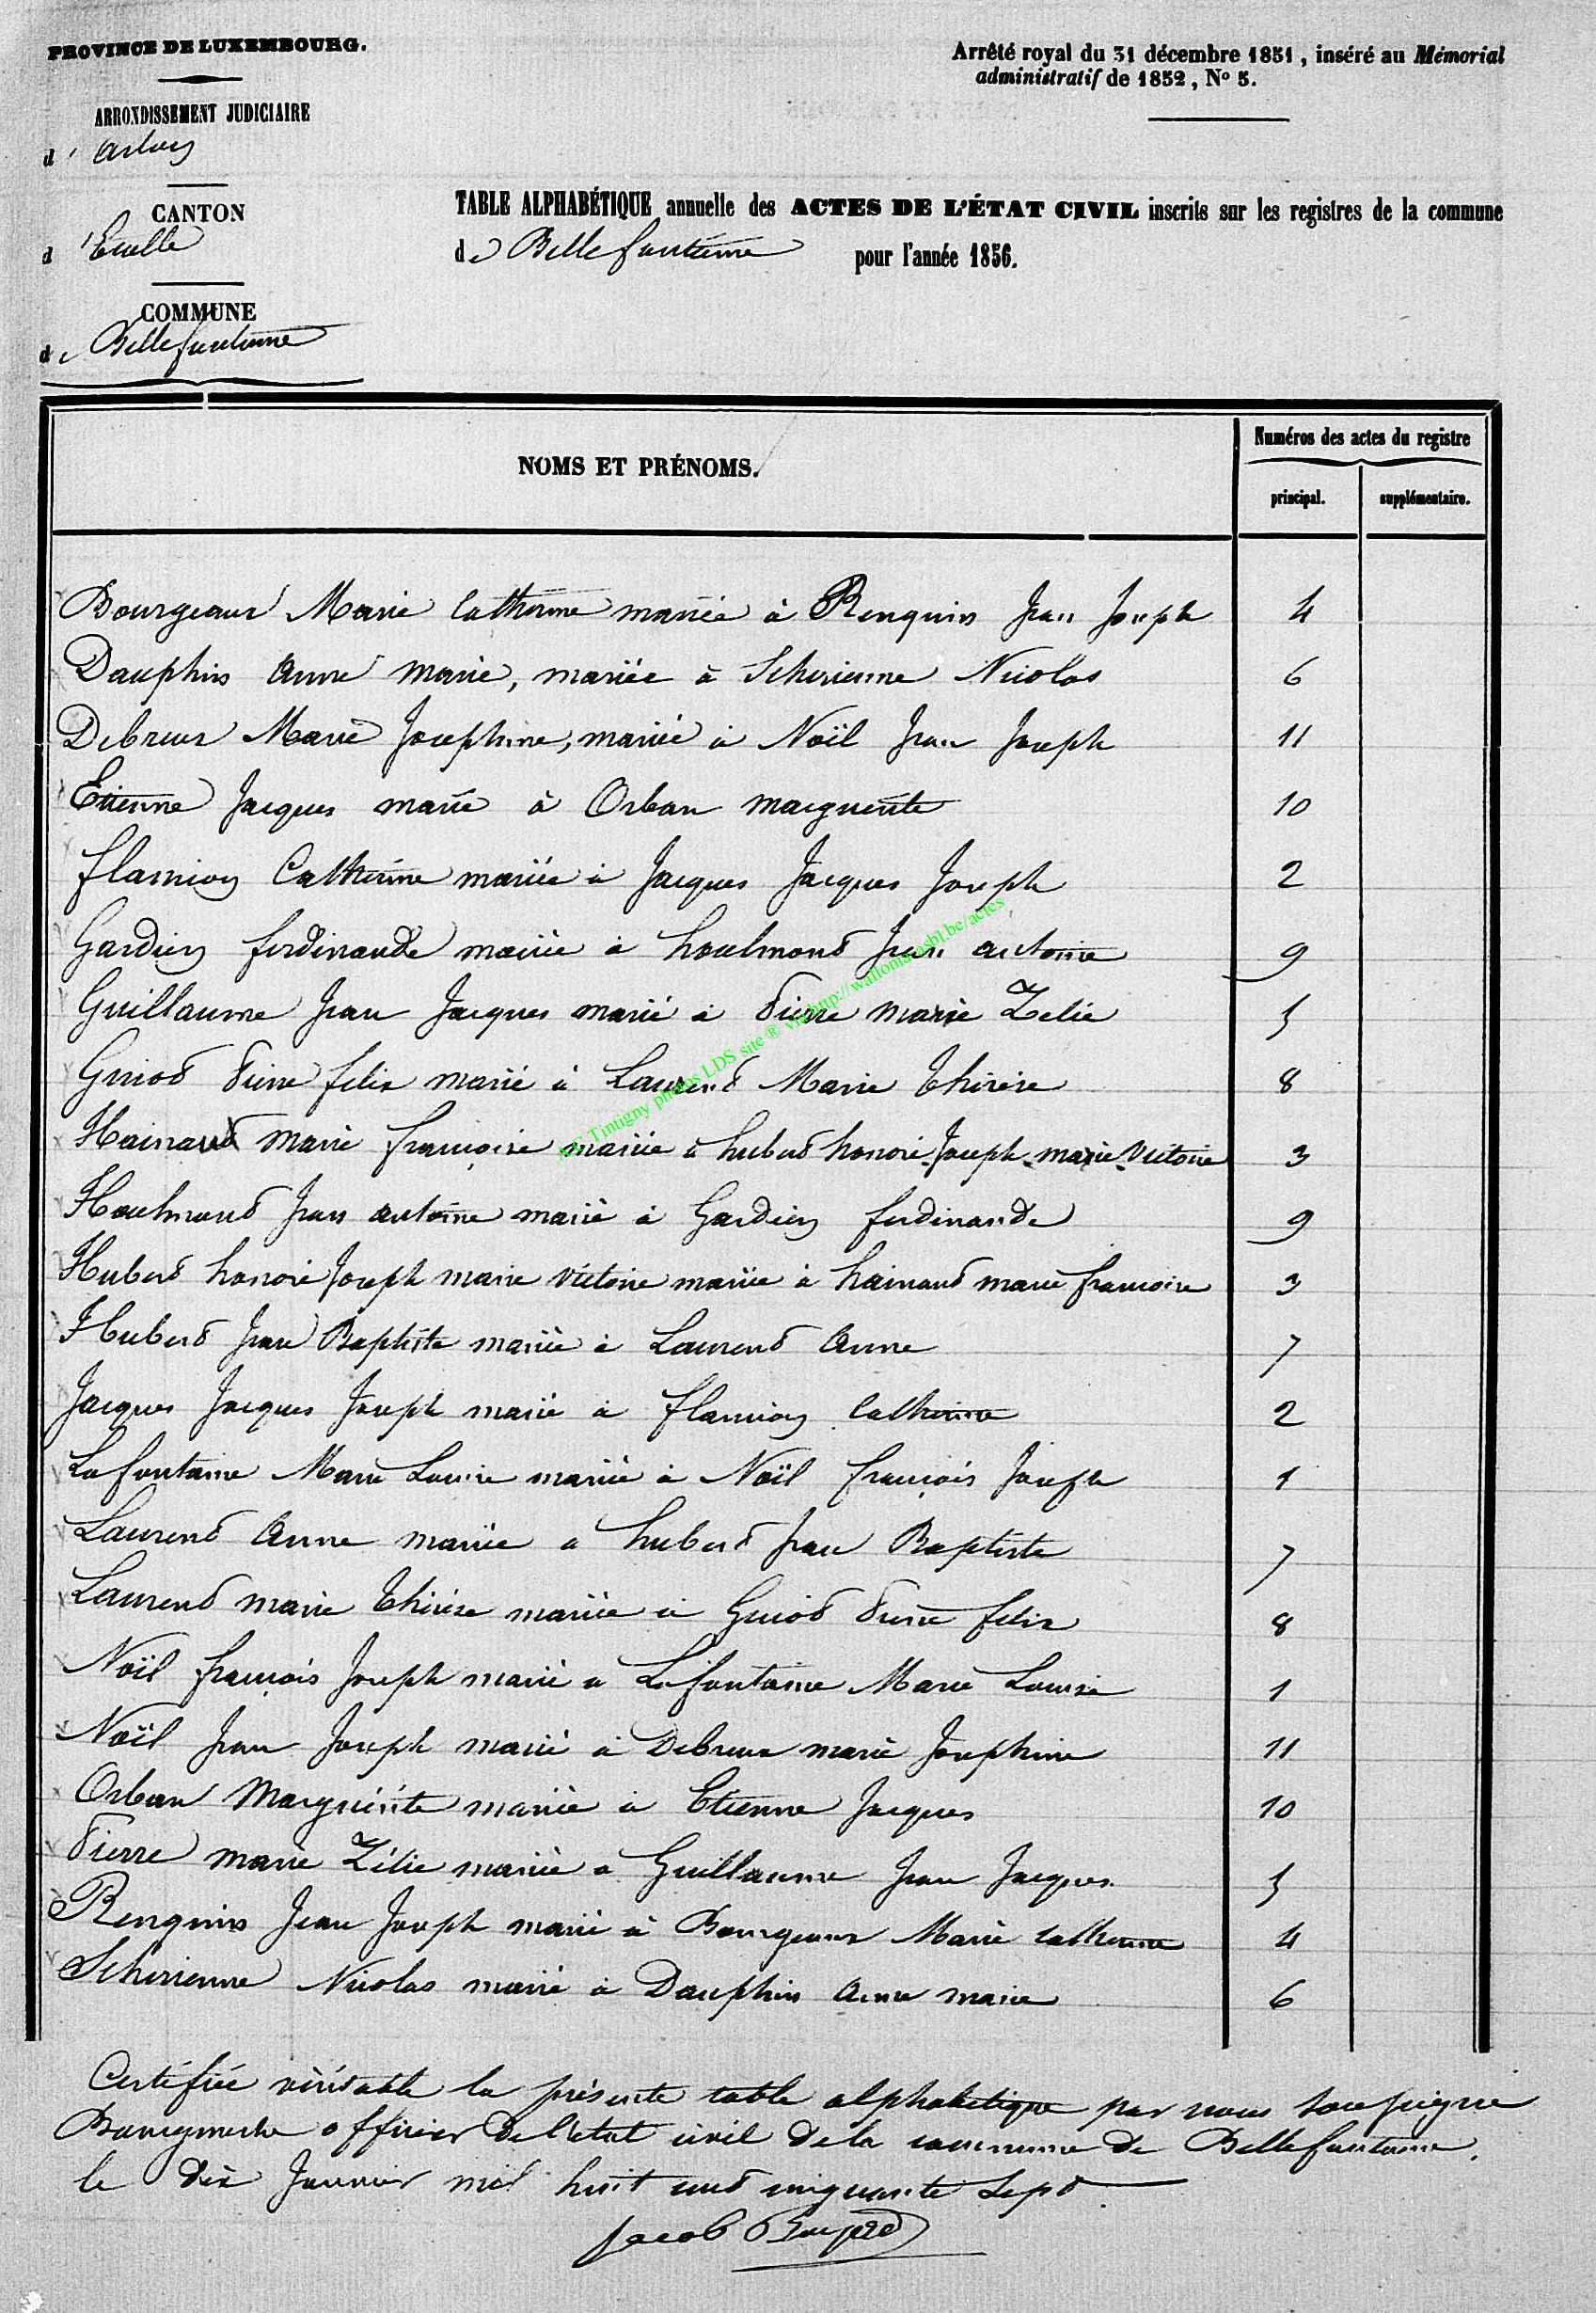 PROVINCE DE LUXEMBOURG.
Arrêté royal du 31 décembre 1851, inséré au Mémorial
administratif de 1852, Nº 5.
ARRONDISSEMENT JUDICIAIRE
d'Arlon
CANTON
d'Etalle
COMMUNE
de Bellefontaine
TABLE ALPHABÉTIQUE annuelle des ACTES DE L'ÉTAT CIVIL inscrits sur les registres de la commune
de Bellefontaine pour l'année 1856.
NOMS ET PRÉNOMS.
Numéros des actes du registre
principal. supplémentaire.
Bourgeaux Marie Catherine mariée à Renquin Jean Joseph 4
Dauphin Anne marie, mariée à Schirienne Nicolas 6
Debreux Marie Josephine, mariée à Noël Jean Joseph 11
Etienne Jacques marié à Orban marguerite 10
flamion Catherine mariée à Jacques Jacques Joseph 2
Gardien ferdinande mariée à houlmond Jean antoine 9
Guillaume Jean Jacques marié à Pierre marie Zelie 5
Guiot Pierre felix marié à Laurent Marie Thérèse 8
Hainaut marie françoise mariée à hubert honoré Joseph marie Victoire 3
Houlmond Jean antoine marié à Gardien ferdinande 9
Hubert honoré Joseph marie Victoire mariée à hainaut marie francoise 3
Hubert Jean Baptiste mariée à Laurent Anne 7
Jacques Jacques Joseph marié à flamion Catherine 2
Lafontaine Marie Louise mariée à Noël françois Joseph 1
Laurent Anne mariée a hubert Jean Baptiste 7
Laurent marie Thérèse mariée à Guiot Pierre felix 8
Noël françois Joseph marié a Lafontaine Marie Louise 1
Noël Jean Joseph marié à Debreux marie Josephine 11
Orban Marguérite mariée à Etienne Jacques 10
Pierre marie Zélie mariée a Guillaume Jean Jacques 5
Renquin Jean Joseph marié à Bourgeaux Marie catherine 4
Schirienne Nicolas marié à Dauphin Anne marie 6
Certifiée véritable la présente table alphabetique par nous soussigné
Bourgmestre officier de l'état civil de la commune de Bellefontaine,
le dix Janvier mil huit cent cinquante sept
Jacob
Tintigny photos LDS site ® via http://wallonia-asbl.be/actes